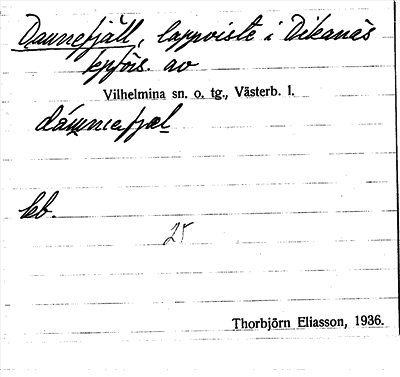 Daunnefjäll, lappviste i Dikanäs
kpförs. av
Vilhelmina sn. o. tg., Västerb. l.
kb.
25
Thorbjörn Eliasson, 1936.